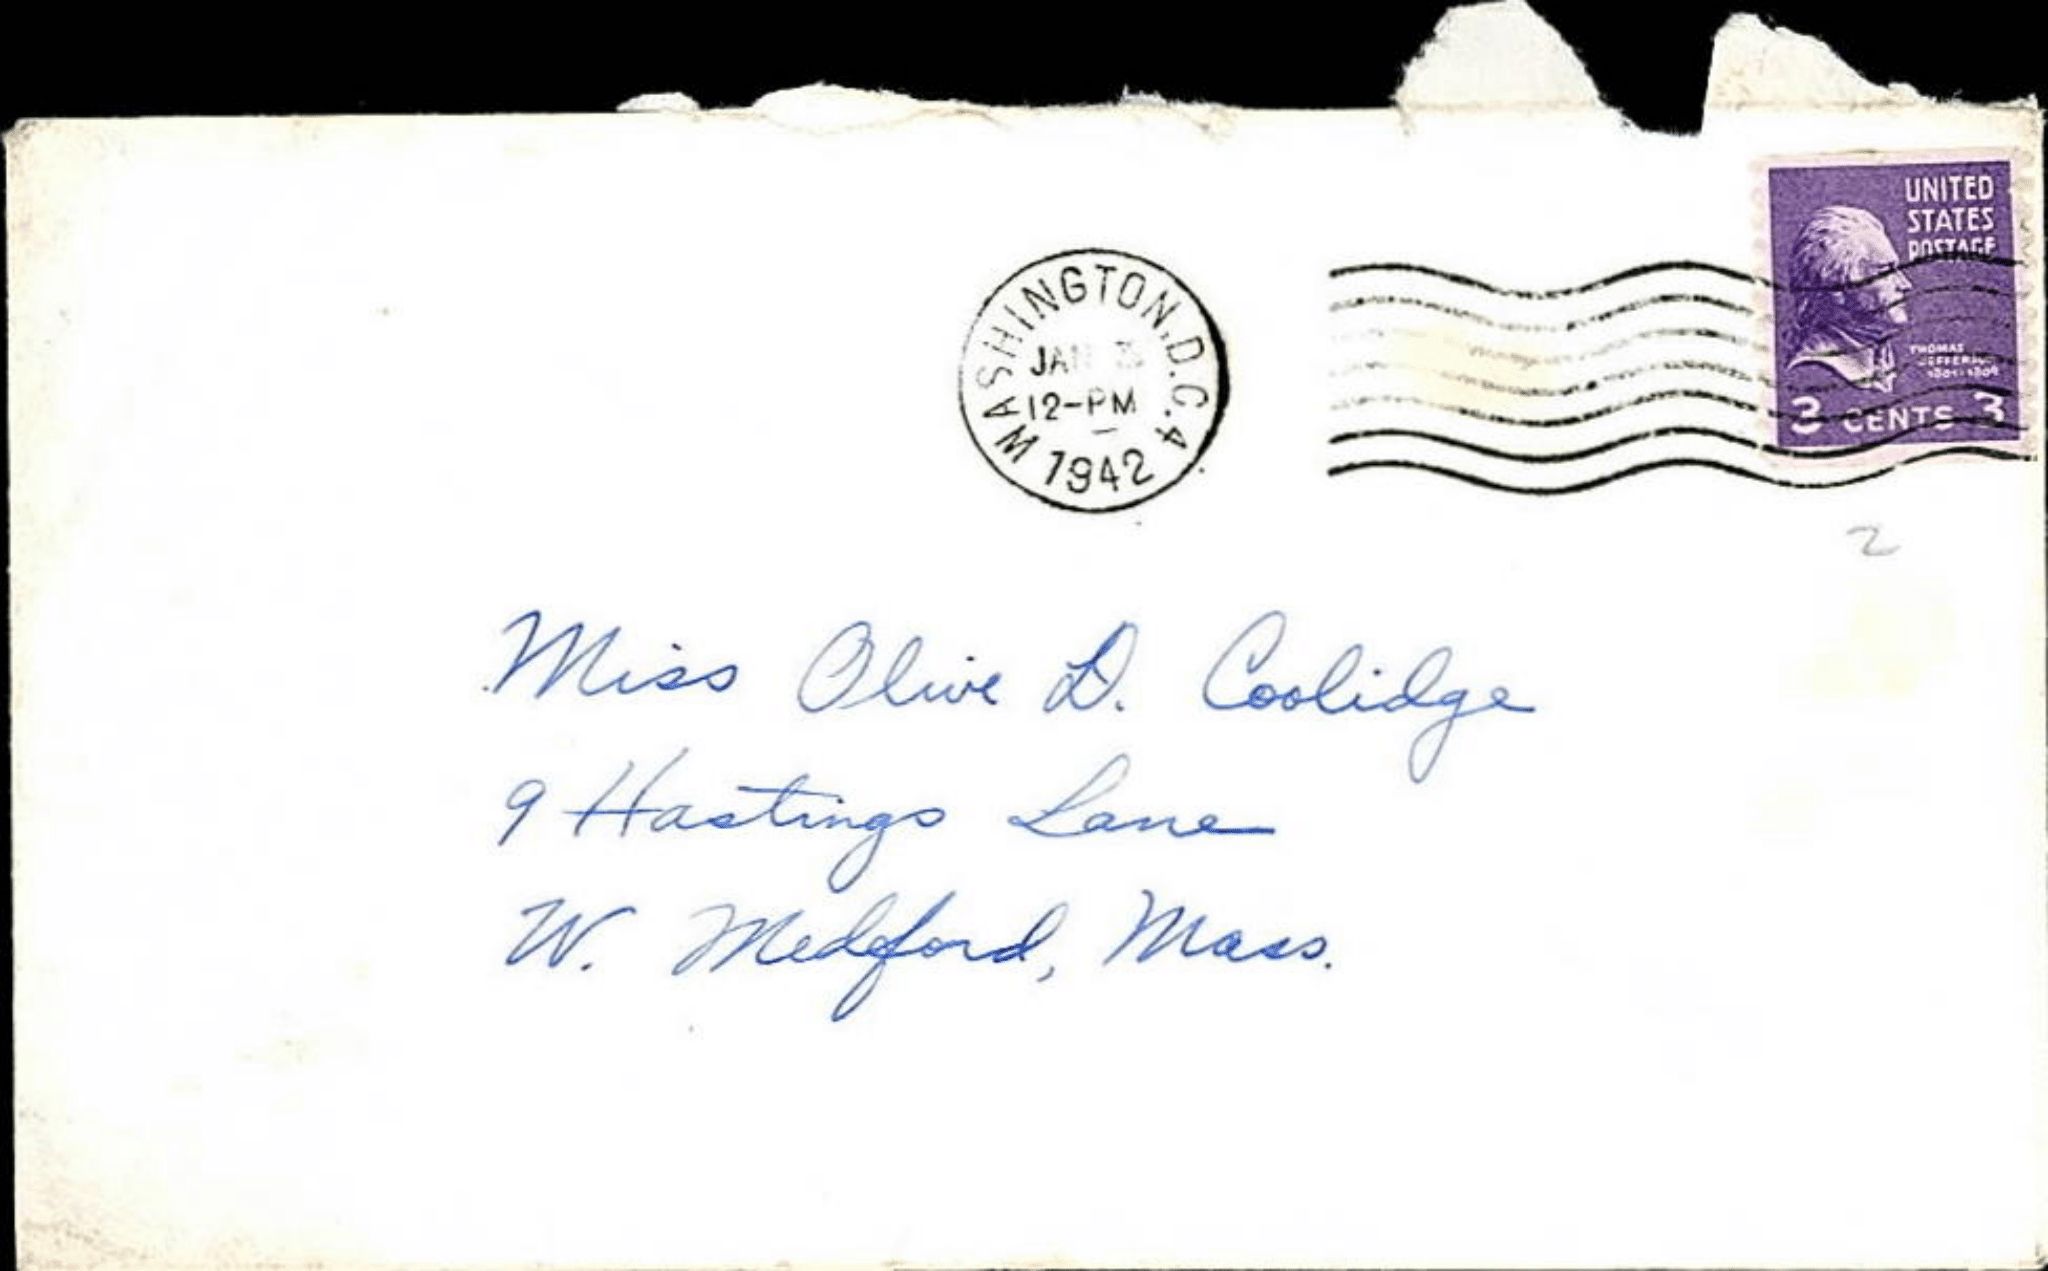 UNITED
STATES
POSTAGE
THOMAS
JEFFERSON
1801-1809
3 CENTS 3
WASHINGTON, D.C. 4
JAN
12-PM
1942
2
Miss Olive D. Coolidge
9 Hastings Lane
W. Medford, Mass.